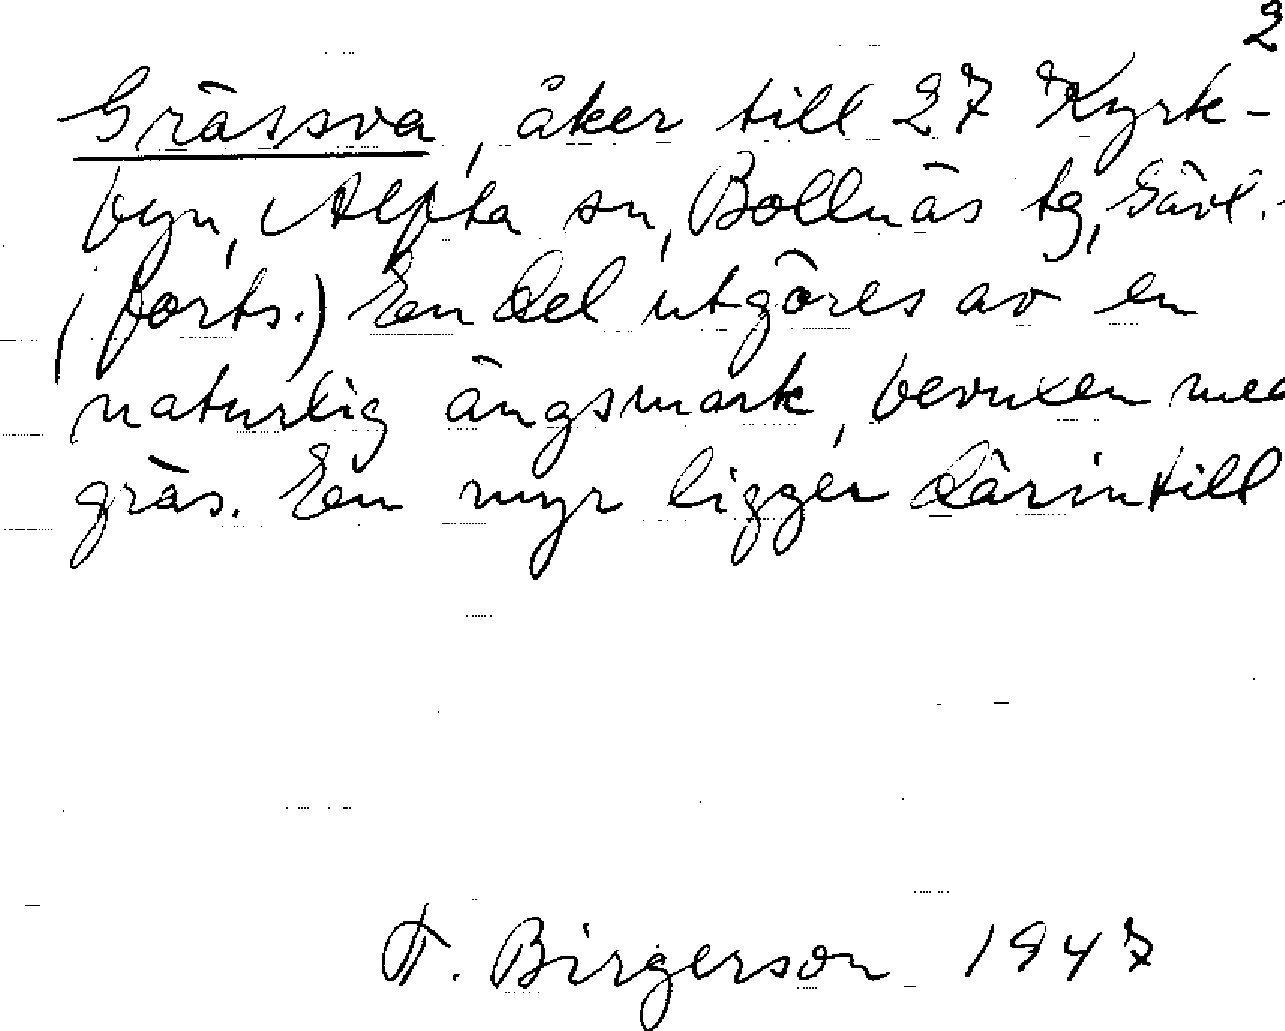 2
Grässva, åker till 27 Kyrk-
byn, Alfta sn, Bollnäs tg, Gävl.
(forts.) En del utgöres av en
naturlig ängsmark, bevuxen med
gräs. En myr ligger därintill
F. Birgerson 1947